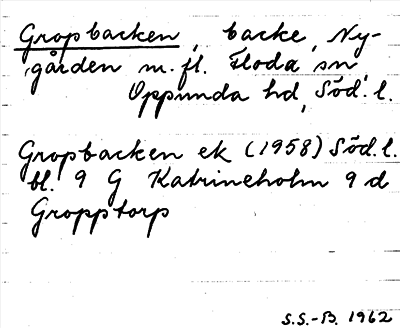 Gropbacken, backe, Ny-
gården m. fl. Floda sn,
Oppunda hd, Söd. l.
Gropbacken ek (1958) Söd. l.
bl. 9 G Katrineholm 9 d
Gropptorp
S.S.-B. 1962